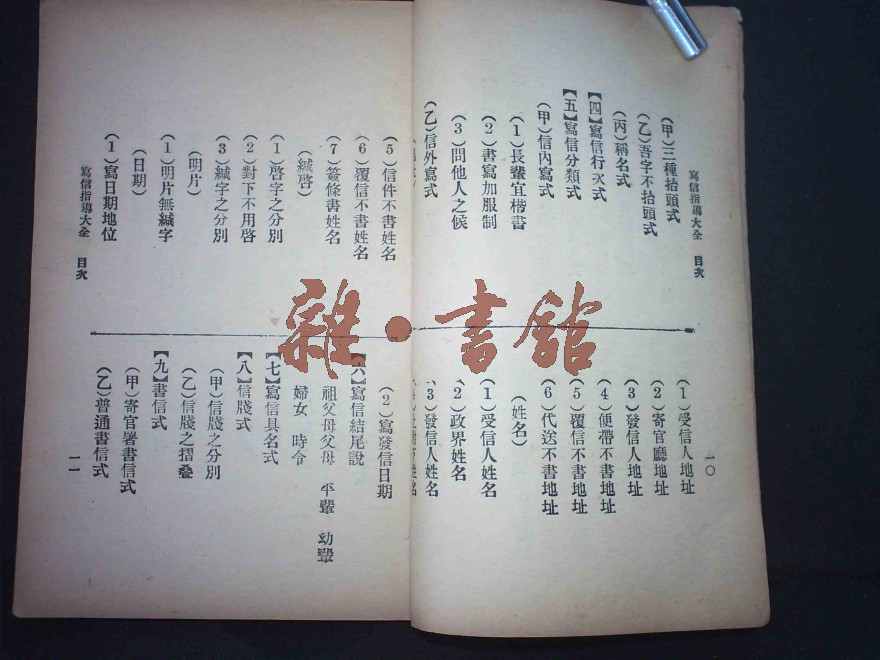 寫信指導大全 目次
(甲)三種抬頭式
(乙)吾字不抬頭式
(丙)稱名式
【四】寫信行次式
【五】寫信分類式
(甲)信內寫式
(1)長輩宜楷書
(2)書寫加服制
(3)問他人之候
(乙)信外寫式
一〇
(1)受信人地址
(2)寄官廳地址
(3)發信人地址
(4)便帶不書地址
(5)覆信不書地址
(6)代送不書地址
(姓名)
(1)受信人姓名
(2)政界姓名
(3)發信人姓名
(5)信件不書姓名
(6)覆信不書姓名
(7)簽條書姓名
(緘啓)
(1)啓字之分別
(2)對下不用啓
(3)緘字之分別
(明片)
(1)明片無緘字
(日期)
(1)寫日期地位
寫信指導大全 目次
(2)寫發信日期
【六】寫信結尾說
祖父母父母 平輩 幼輩
婦女 時令
【七】寫信具名式
【八】信牋式
(甲)信牋之分別
(乙)信牋之摺叠
【九】書信式
(甲)寄官署書信式
(乙)普通書信式
一一
雜·書館